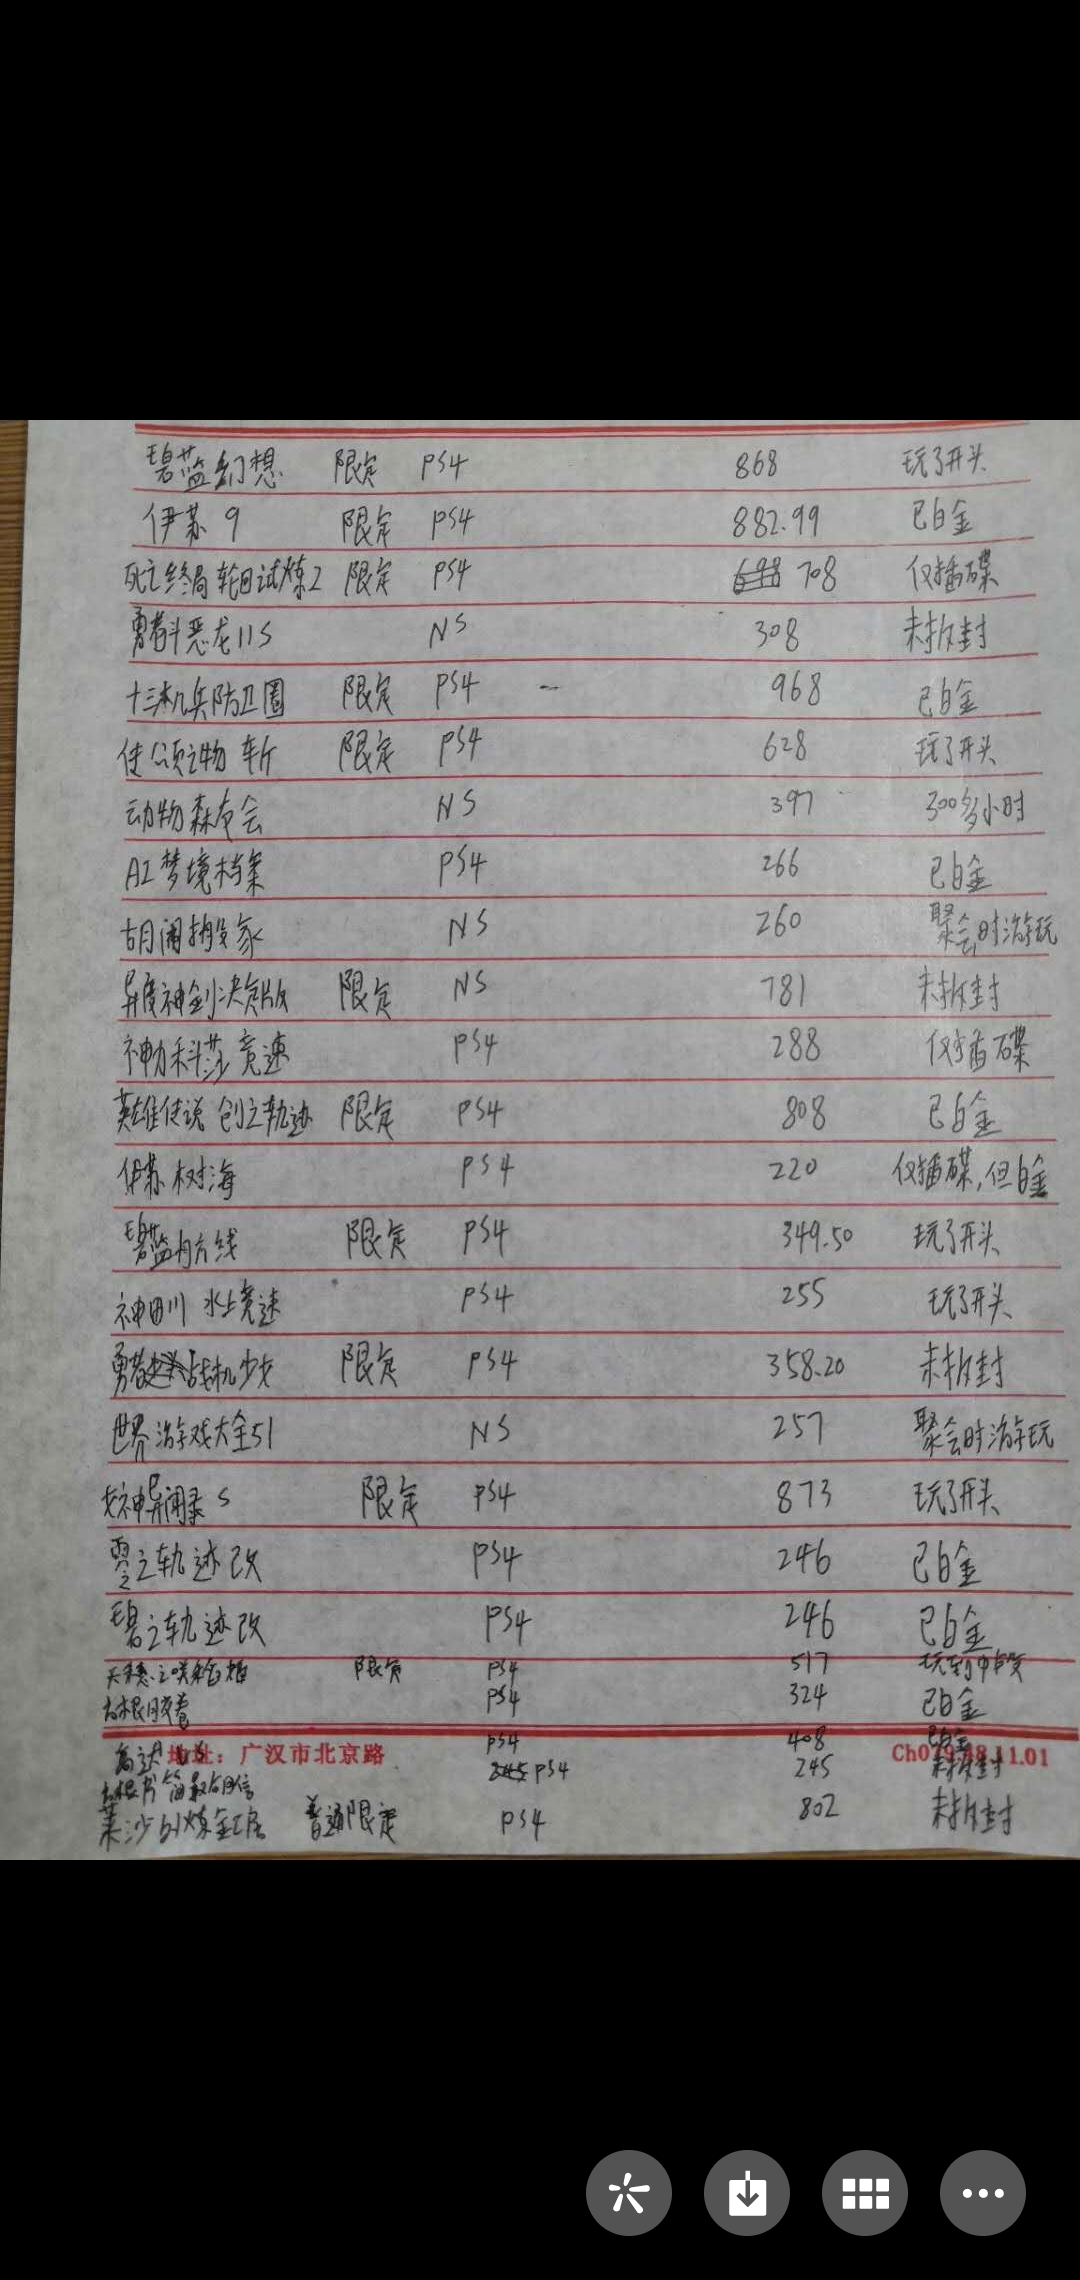 碧蓝幻想 限定 PS4 868 玩了开头
伊苏9 限定 PS4 882.99 已白金
死亡终局 轮回试炼2 限定 PS4 708 仅插碟
勇者斗恶龙11S NS 308 未拆封
十三机兵防卫圈 限定 PS4 - 968 已白金
传颂之物 斩 限定 PS4 628 玩了开头
动物森友会 NS 397 300多小时
AI梦境档案 PS4 266 已白金
胡闹搬家 NS 260 聚会时游玩
异度神剑决定版 限定 NS 781 未拆封
神力科莎 竞速 PS4 288 仅插碟
英雄传说 创之轨迹 限定 PS4 808 已白金
伊苏 树海 PS4 220 仅插碟,但白金
碧蓝航线 限定 PS4 349.50 玩了开头
神田川 水上竞速 PS4 255 玩了开头
勇者战机少女 限定 PS4 358.20 未拆封
世界游戏大全51 NS 257 聚会时游玩
女神异闻录S 限定 PS4 873 玩了开头
零之轨迹改 PS4 246 已白金
碧之轨迹改 PS4 246 已白金
天穗之咲稻姬 限定 PS4 517 玩到中段
方根胶卷 PS4 324 已白金
高达 PS4 408 已白金
地址：广汉市北京路 Ch079.48.11.01
方根书简 PS4 245 未拆封
莱莎的炼金工房 普通限定 PS4 802 未拆封